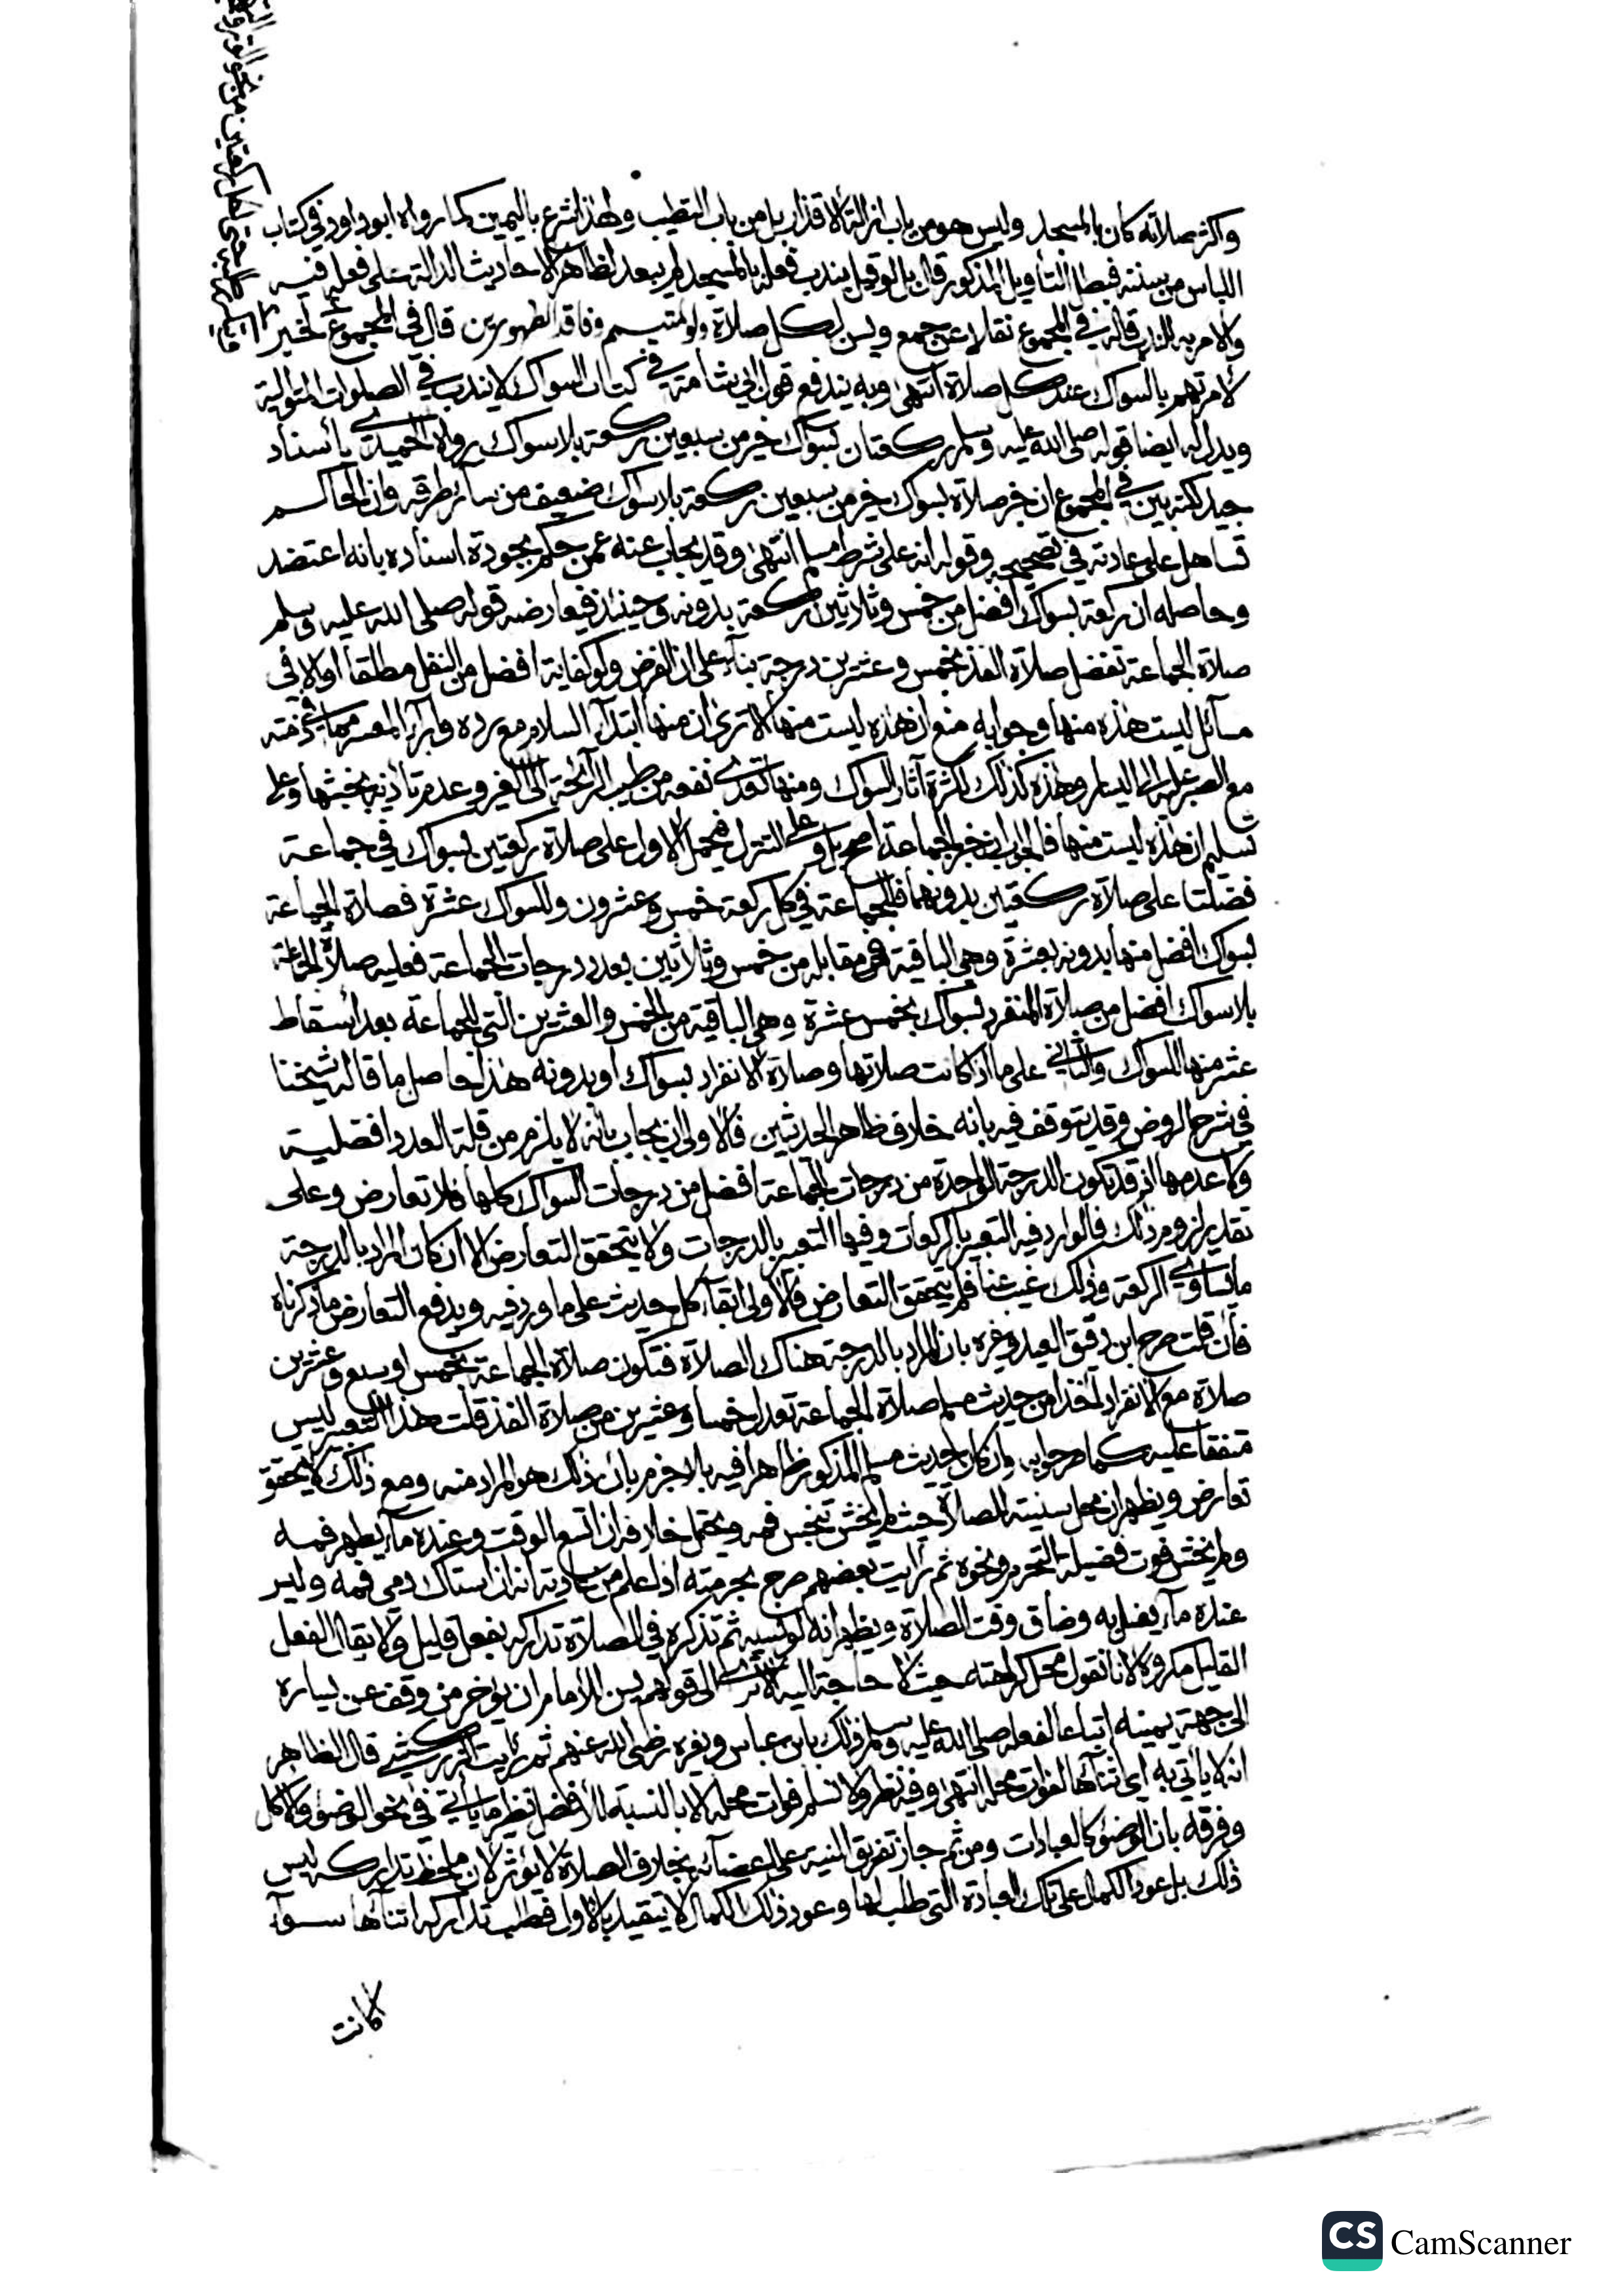 واكثر صلاته كان بالمسجد وليس هو من باب ازالة الاقذار بل من باب التطيب ولهذا شرع باليمين كما رواه ابو داود في كتاب
اللباس من سننه فبطل التأويل المذكور قال بل لو قيل يندب فعله بالمسجد لم يبعد لظاهر الاحاديث الدالة على فعله فيه
والامر به للندب قاله في المجموع نقلا عن جمع ويسن لكل صلاة ولو لمتيمم وفاقد الطهورين قال في المجموع لخبر
لامرتهم بالسواك عند كل صلاة انتهى وبه يندفع قول ابي شامة في كتاب السواك لا يندب في الصلوات المتوالية
ويدل له ايضا قوله صلى الله عليه وسلم ركعتان بسواك خير من سبعين ركعة بلا سواك رواه الحميدي بأسناد
جيد لكنه بين في المجموع ان خبر صلاة بسواك خير من سبعين ركعة بلا سواك ضعيف من سائر طرقه وان الحاكم
تساهل على عادته في تصحيحه وقوله انه على شرط مسلم انتهى وقد يجاب عنه عمن حكم بجودة اسناده بانه اعتضد
وحاصله ان ركعة بسواك افضل من خمس وثلاثين ركعة بدونه وحينئذ فيعارضه قوله صلى الله عليه وسلم
صلاة الجماعة تفضل صلاة الفذ بخمس وعشرين درجة بناء على ان الفرض ولو كفاية افضل من النفل مطلقا او الا في
مسائل ليست هذه منها وجوابه منع ان هذه ليست منها الا ترى ان منها ابتدآء السلام مع رده وابرآء المعسر مما في ذمته
مع الصبر عليه الى اليسار وهذه كذلك لكثرة آثار السواك ومنها تعدي نفعه من طيب الرائحة الى الغير وعدم تأذيه بخبثها وعلى
تسليم ان هذه ليست منها فالجواب ان خبر الجماعة اصح بل وعلى التنزل فيحمل الاول على صلاة ركعتين بسواك في جماعة
فضلتا على صلاة ركعتين بدونهما فللجماعة في كل ركعة خمس وعشرون وللسواك عشرة فصلاة الجماعة
بسواك افضل منها بدونه بعشرة وهي الباقية في مقابله من خمس وثلاثين بعدد درجات الجماعة فعليه صلاة الجماعة
بلا سواك افضل من صلاة المنفرد بسواك بخمس عشرة وهي الباقية من الخمس والعشرين التي للجماعة بعد أسقاط
عشر منها للسواك والثاني على ما اذا كانت صلاتها وصلاة الانفراد بسواك او بدونه هذا حاصل ما قاله شيخنا
في شرح الروض وقد يتوقف فيه بانه خلاف ظاهر الحديثين فالاولى ان يجاب بأنه لا يلزم من قلة العدد افضلية
ولا عدمها اذ قد تكون الدرجة الواحدة من درجات الجماعة افضل من درجات السواك كلها فلا تعارض وعلى
تقدير لزوم ذلك فالوارد فيه التعبير بالركعات وفيها التعبير بالدرجات ولا يتحقق التعارض الا ان كان المراد بالدرجة
ما يساوي الركعة وذلك غيب عنا فلم يتحقق التعارض فالاولى ابقآء كل حديث على ما ورد فيه ويدفع التعارض ما ذكرناه
فأن قلت صرح ابن دقيق العيد وغيره بان المراد بالدرجة هناك الصلاة فتكون صلاة الجماعة بخمس او سبع وعشرين
صلاة مع الانفراد أخذا من حديث مسلم صلاة الجماعة تعدل خمسا وعشرين من صلاة الفذ قلت هذا التعبير ليس
متفقا عليه كما صرحوا به وان كان حديث مسلم المذكور ظاهرا فيه بلا جزم بأن ذلك هو المراد منه ومع ذلك لا يتحقق
تعارض ويظهر ان محل سنيته للصلاة حيث لم يخش تنجس فمه ويحتمل خلافه ان اتسع الوقت وعنده مآء يطهر فمه
ولم يخش فوت فضيلة التحرم ونحوه ثم رأيت بعضهم صرح بحرمته اذا علم من عادته انه ان استاك دمي فمه وليس
عنده مآء يغسله به وضاق وقت الصلاة ويظهر انه لو نسيه ثم تذكره في الصلاة تداركه بفعل قليل ولا يقال الفعل
القليل مكروه لانا نقول محل كراهته حيث لا حاجة اليه الا ترى الى قولهم يسن للامام ان يؤخر من وقف عن يساره
الى جهة يمينه اتباعا لفعله صلى الله عليه وسلم ذلك بابن عباس وغيره رضي الله عنهم ثم رأيت الزركشي قال الظاهر
انه لا يأتي به اي اثنآءها لفوات محله انتهى وفيه نظر ولا نسلم فوات محله الا بالنسبة للأفضل نظير ما يأتي في نحو الوضوء والاكل
وفرقه بان الوضوء كالعبادات ومن ثم جاز تفريق النية على اعضائه بخلاف الصلاة لا يؤثر لان ملحظ تداركه ليس
ذلك بل عود الكمال على تلك العبادة التي طلب لها وعود ذلك الكمال لا يتقيد بالاول فطلب تداركه اثنآءها سوآء
كانت